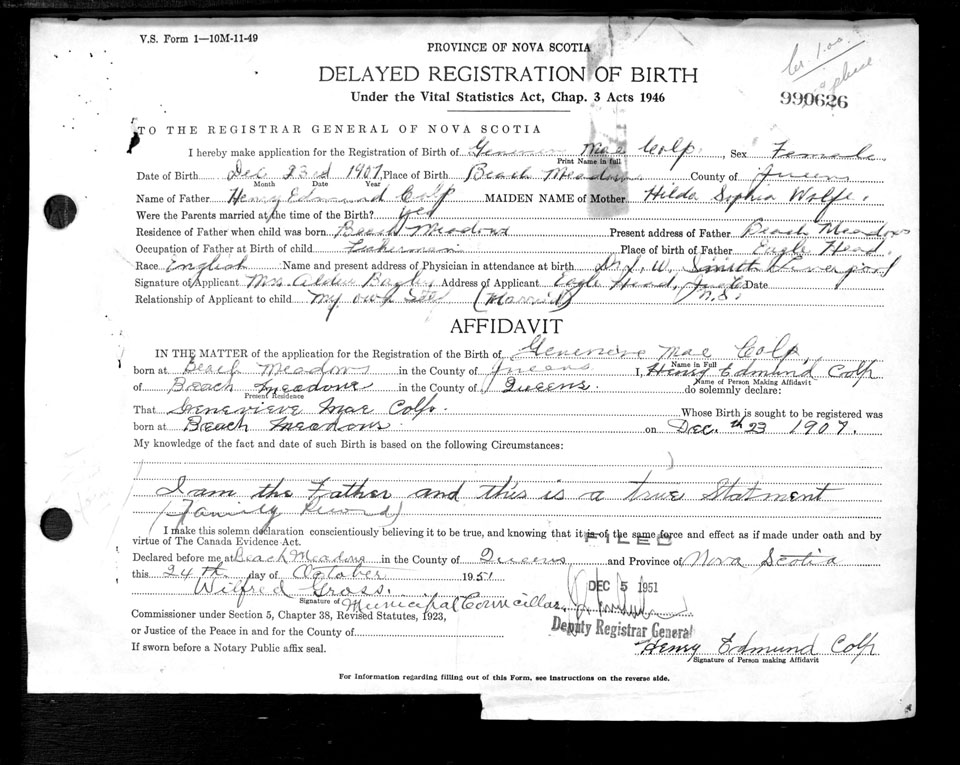 V.S. Form 1—10M-11-49
PROVINCE OF NOVA SCOTIA
DELAYED REGISTRATION OF BIRTH
Under the Vital Statistics Act, Chap. 3 Acts 1946
990626
TO THE REGISTRAR GENERAL OF NOVA SCOTIA
I hereby make application for the Registration of Birth of Mae Colp, Sex Female
Print Name in full
Date of Birth Dec 23rd 1907, Place of Birth Beach Meadows County of Queens
Month Date Year
Name of Father Henry Edmund Colp MAIDEN NAME of Mother Hilda Sophia Wolfe.
Were the Parents married at the time of the Birth? yes
Residence of Father when child was born Beach Meadows Present address of Father Beach Meadows
Occupation of Father at Birth of child Fisherman Place of birth of Father Eagle Head.
Race English Name and present address of Physician in attendance at birth Dr J. W. Smith Liverpool
Signature of Applicant Mrs Alden Address of Applicant Eagle Head, Date
N.S.
Relationship of Applicant to child My own (Married)
AFFIDAVIT
IN THE MATTER of the application for the Registration of the Birth of Genevieve Mae Colp.
Name in Full
born at Beach Meadows in the County of Queens I, Henry Edmund Colp
Name of Person Making Affidavit
of Beach Meadows in the County of Queens. do solemnly declare:
Present Residence
That Genevieve Mae Colp. Whose Birth is sought to be registered was
born at Beach Meadows on Dec. th 23 1907.
My knowledge of the fact and date of such Birth is based on the following Circumstances:
I am the Father and this is a true Statment
(Family Record)
I make this solemn declaration conscientiously believing it to be true, and knowing that it is of the same force and effect as if made under oath and by
virtue of The Canada Evidence Act.
FILED
Declared before me at Beach Meadows in the County of Queens and Province of Nova Scotia
this 24th day of October 1951
DEC 5 1951
Wilfred Gross.
Signature of Municipal Councillor.
Commissioner under Section 5, Chapter 38, Revised Statutes, 1923,
Deputy Registrar General
or Justice of the Peace in and for the County of
Henry Edmund Colp
If sworn before a Notary Public affix seal.
Signature of Person making Affidavit
For Information regarding filling out of this Form, see instructions on the reverse side.